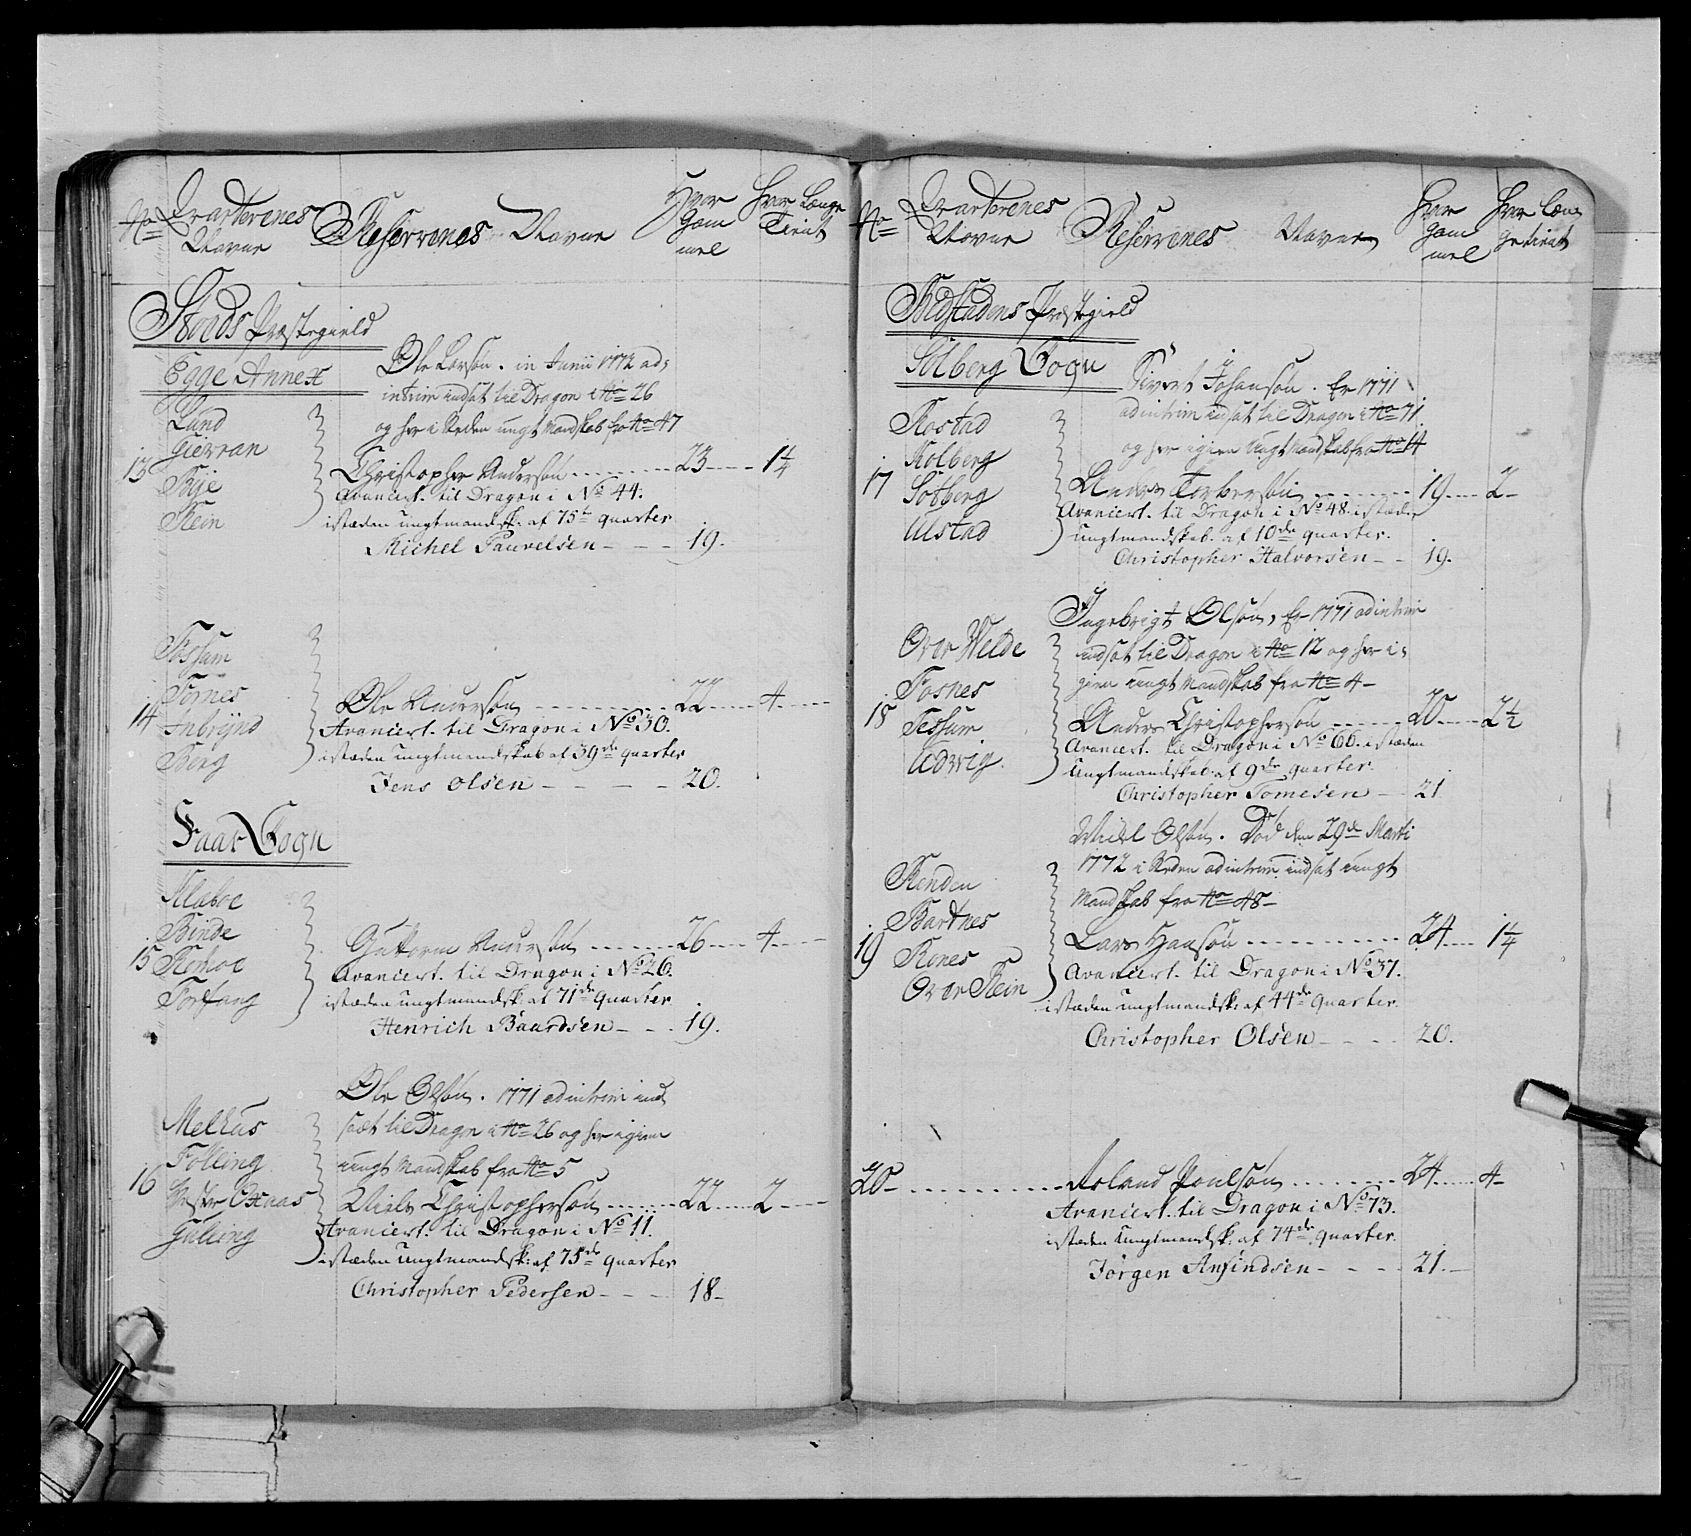 No Qvarterenes Navne
Reserrenes Navne
Hvor Gam mel
Hvor Længe Tient
Stods Præstegield
Egge Annex
Ole Larsøn. in Junii 1772 ad
intrim indsat til Dragon i No 26
og her i Steden ungt Mandskab fra No 47
Lund
Gievran
13
Bije
Stein
Christopher Andersøn 23 1 1/4
Avancert. til Dragon i No 44.
istæden ungtmandsk: af 75te quarter
Michel Paurelsen - - - 19.
Fossum
Tornes
14
Berg
Ole Andersøn 22 4
Avancert. til Dragon i No 30.
istæden ungtmandskab af 39de quarter
Jens Olsen - - - - 20.
Faar Sogn
Binde
15
Guttorm Andersøn 26 4
Avancert. til Dragon i No 26.
istæden ungtmandsk: af 71de quarter
Henrich Baardsen - - - 19.
Ole Olsøn. 1771 adintrim ind
sæt til Dragon i No 26 og her igien
ungt Mandskab fra No 5
Melhus
Følling
16
Giæling
Niels Christophersøn 22 2
Avancert. til Dragon i No 11.
istæden ungtmandsk: af 75de quarter
Christopher Pedersen - - - 18
No Qvarterenes Navne
Reserrenes Navne
Hvor Gam mel
Hvor Læn getient
Bedstadens Præstegield
Solberg Sogn
Sivert Johansøn. Er 1771
adintrim indsat til Dragon i No 71
og her igien ungt Mandskab fra No 14
Rostad
Kolberg
17
Solberg
Alstad
Anders Torbersøn 19 2
Avancert. til Dragon i No 48. istæden
ungtmandskab. af 10de quarter.
Christopher Halvorsen - - 19.
Ingebrigt Olsøn, Er 1771 adintrim
indsat til Dragon i No 12 og her i
gien ungt Mandskab fra No 4
Over Welde
Fosnes
18
Tessum
Udvig
Anders Christophersøn 20 2 1/2
Avancert. til Dragon i No 66. istæden
ungtmandskab. af 9de quarter.
Christopher Tomesen - - 21
Niels Olsøn. Død den 29de Marti
1772 i Steden adintrim indsat ungt
Mandskab fra No 48
Bartnes
19
Over Stein
Lars Hansøn 24 1 1/4
Avancert. til Dragon i No 37.
istæden ungtmandsk: af 44de quarter.
Christopher Olsen - - - - 20.
20
Poulsøn 24 4
Avancert. til Dragon i No 73.
istæden ungtmandsk: af 74de quarter.
Jørgen Anfindsen - - - - 21.